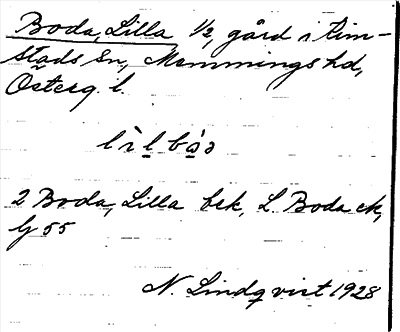 Boda, Lilla 1/2, gård i Kim-
stads sn, Memmings hd,
Österg. l.
lìl bós
2 Boda, Lilla bek, L. Boda ek,
G 55
N. Lindqvist 1928